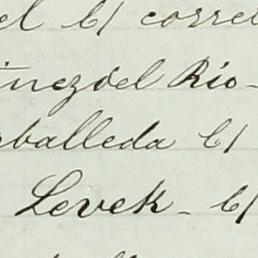 el C/ corre
inez del Rio-
rballeda C/
Levek - C/